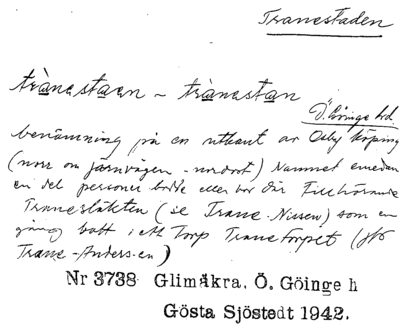 Tranestaden
trànastaen ~ trànastan
Ö. Göinge hd
benämning på en utkant av Osby köping
(norr om järnvägen - nordost) Namnet emedan
en del personer bodde eller bor där tillhörande
Tranesläkten (se Trane-Nissen) som en
gång bott i ett torp Tranetorpet (jfr
Trane-Anders-en)
Nr 3738 Glimåkra, Ö. Göinge h
Gösta Sjöstedt 1942.